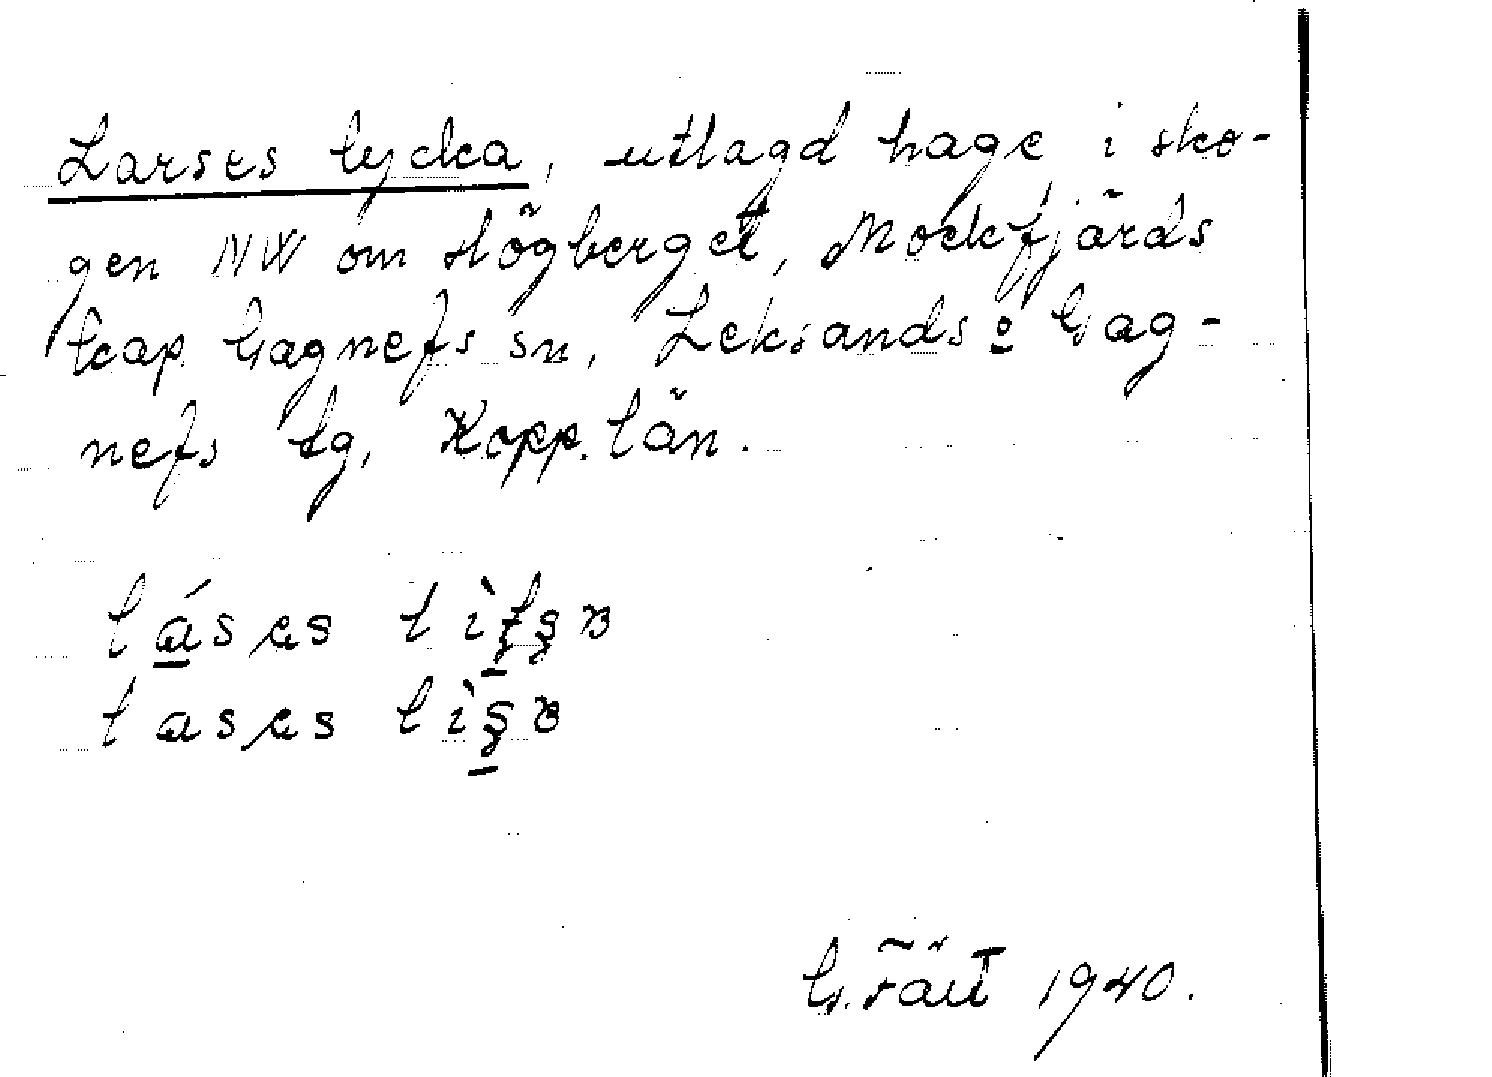 Larses lycka, utlagd hage i sko-
gen NW om Högberget, Mockfjärds
kap. Gagnefs sn, Leksands o Gag-
nefs tg, Kopp. län.
G. Fält 1940.